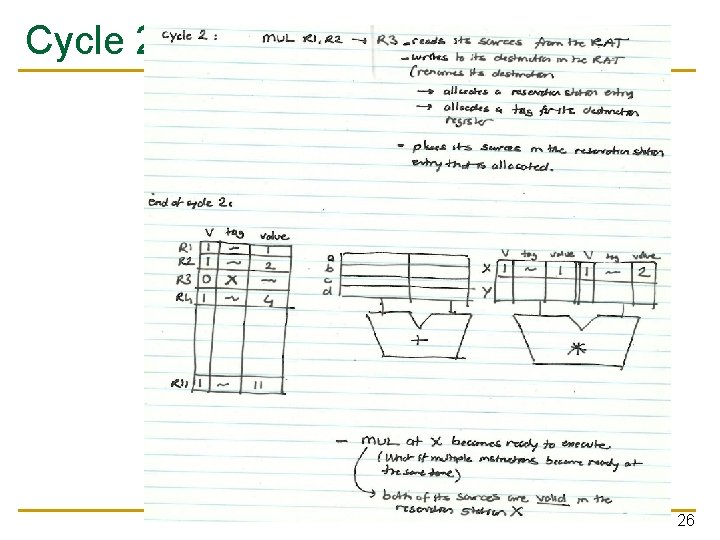 Cycle 2
cycle 2 : MUL R1, R2 → R3 - reads its sources from the RAT
- writes to its destination in the RAT
(renames its destination
→ allocates a reservation station entry
→ allocates a tag for its destination
register
- places its sources in the reservation station
entry that is allocated.
end of cycle 2:
V tag value
R1 1 ~ 1
R2 1 ~ 2
R3 0 X ~
R4 1 ~ 4
R11 1 ~ 11
a
b
c
d
+
V tag value V tag value
X 1 ~ 1 1 ~ 2
Y
*
- MUL at X becomes ready to execute
(What if multiple instructions become ready at
the same time)
→ both of its sources are valid in the
reservation station X
26